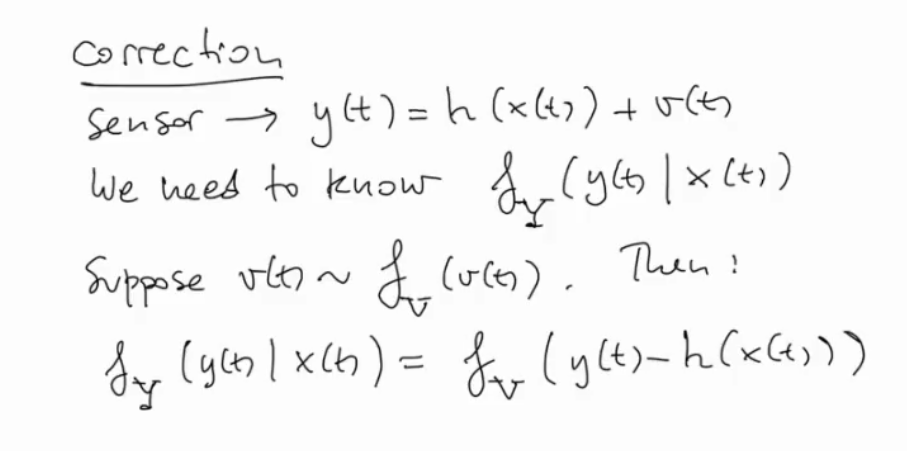 correction
sensor → y(t) = h(x(t)) + v(t)
We need to know f_Y(y(t) | x(t))
Suppose v(t) ~ f_V(v(t)). Then:
f_Y(y(t) | x(t)) = f_V(y(t) - h(x(t)))